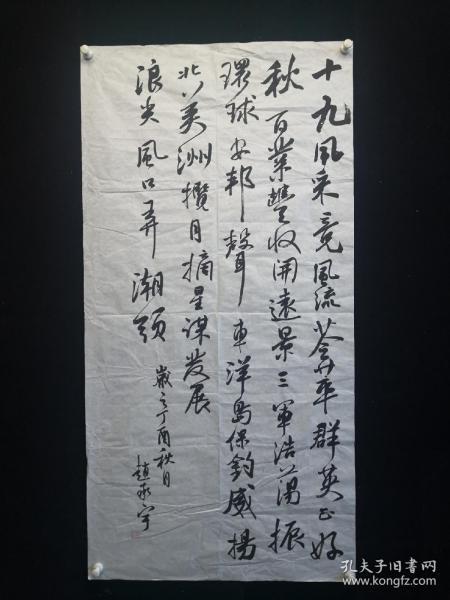 十九風采竞風流荟萃群英正好
秋百業豐收開遠景三軍浩蕩振
環球安邦聲車洋島保釣威揚
北美洲攬月摘星谋发展
浪尖風口弄潮頭
歲之丁酉秋月
趙永宇
孔夫子旧书网
www.kongfz.com